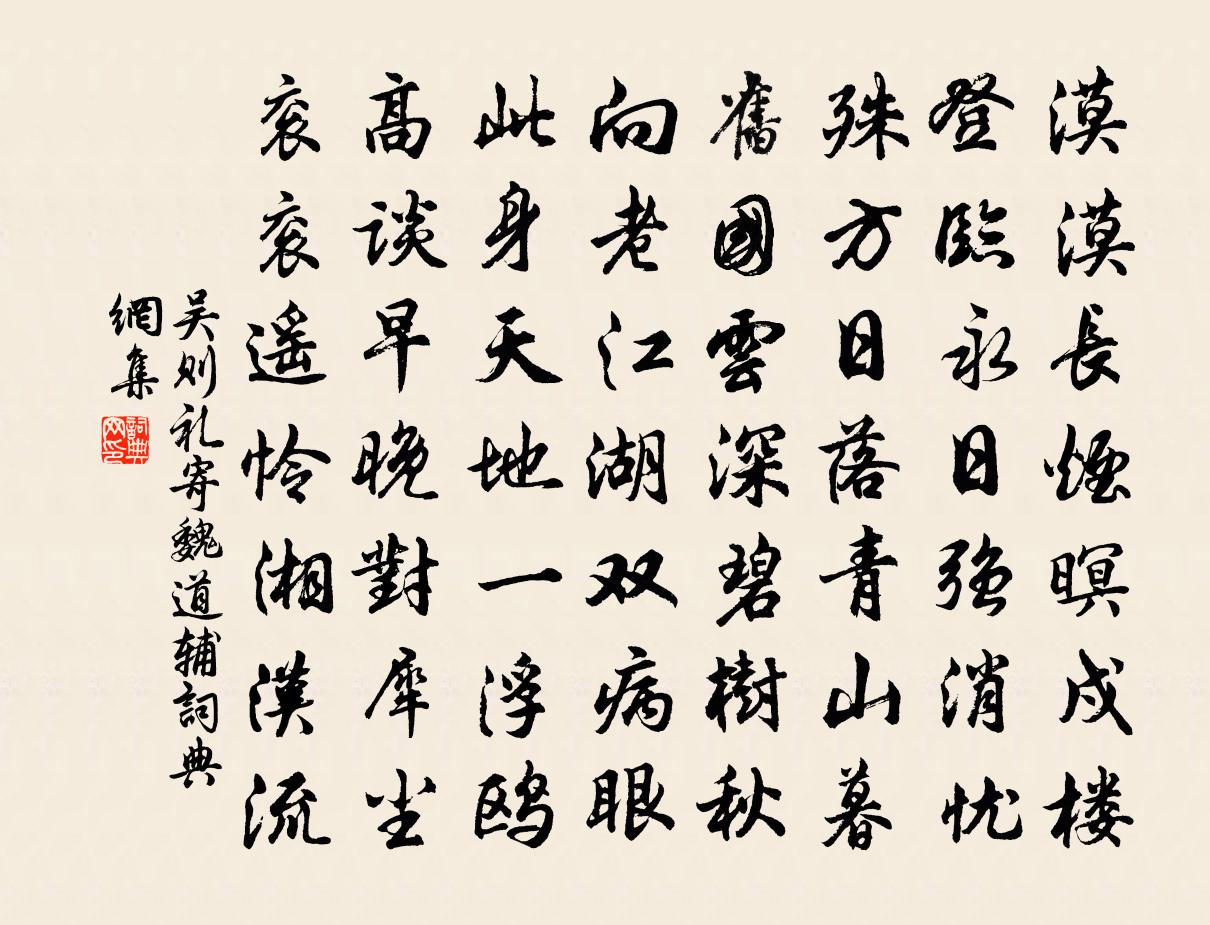 漠漠長煙暝戍楼
登臨永日強消忧
殊方日落青山暮
舊國雲深碧樹秋
向老江湖双病眼
此身天地一浮鸥
高談早晚對犀尘
衮衮遥怜湘漢流
吴则礼寄魏道辅詞典
網集
詞典
网印